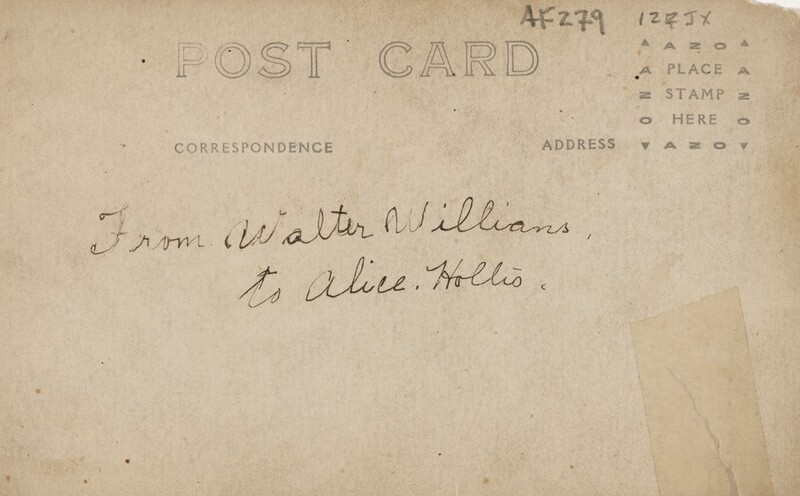 AF279 127JX
POST CARD
▲ AZO ▲
A PLACE A
Z STAMP Z
O HERE O
▼ AZO ▼
CORRESPONDENCE
ADDRESS
From Walter Willians,
to Alice. Hollis.